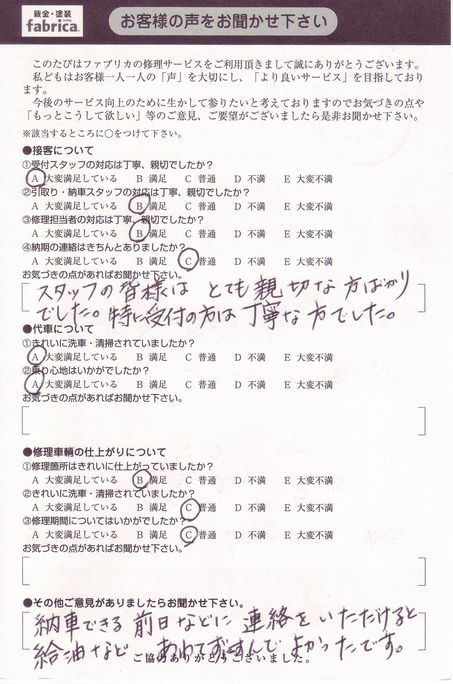 鈑金・塗装
fabrica.
お客様の声をお聞かせ下さい
このたびはファブリカの修理サービスをご利用頂きまして誠にありがとうございます。
私どもはお客様一人一人の「声」を大切にし、「より良いサービス」を目指しており
ます。
今後のサービス向上のために生かして参りたいと考えておりますのでお気づきの点や
「もっとこうして欲しい」等のご意見、ご要望がございましたら是非お聞かせ下さい。
※該当するところに○をつけて下さい。
●接客について
①受付スタッフの対応は丁寧、親切でしたか？
A 大変満足している B 満足 C 普通 D 不満 E 大変不満
②引取り・納車スタッフの対応は丁寧、親切でしたか？
A 大変満足している B 満足 C 普通 D 不満 E 大変不満
③修理担当者の対応は丁寧、親切でしたか？
A 大変満足している B 満足 C 普通 D 不満 E 大変不満
④納期の連絡はきちんとありましたか？
A 大変満足している B 満足 C 普通 D 不満 E 大変不満
お気づきの点があればお聞かせ下さい。
スタッフの皆様は とても親切な方ばかり
でした。特に受付の方は丁寧な方でした。
●代車について
①きれいに洗車・清掃されていましたか？
A 大変満足している B 満足 C 普通 D 不満 E 大変不満
②乗り心地はいかがでしたか？
A 大変満足している B 満足 C 普通 D 不満 E 大変不満
お気づきの点があればお聞かせ下さい。
●修理車輌の仕上がりについて
①修理箇所はきれいに仕上がっていましたか？
A 大変満足している B 満足 C 普通 D 不満 E 大変不満
②きれいに洗車・清掃されていましたか？
A 大変満足している B 満足 C 普通 D 不満 E 大変不満
③修理期間についてはいかがでしたか？
A 大変満足している B 満足 C 普通 D 不満 E 大変不満
お気づきの点があればお聞かせ下さい。
●その他ご意見がありましたらお聞かせ下さい。
納車できる前日などに 連絡をいただけると
給油など あわてずすんで よかったです。
ご協力ありがとうございました。